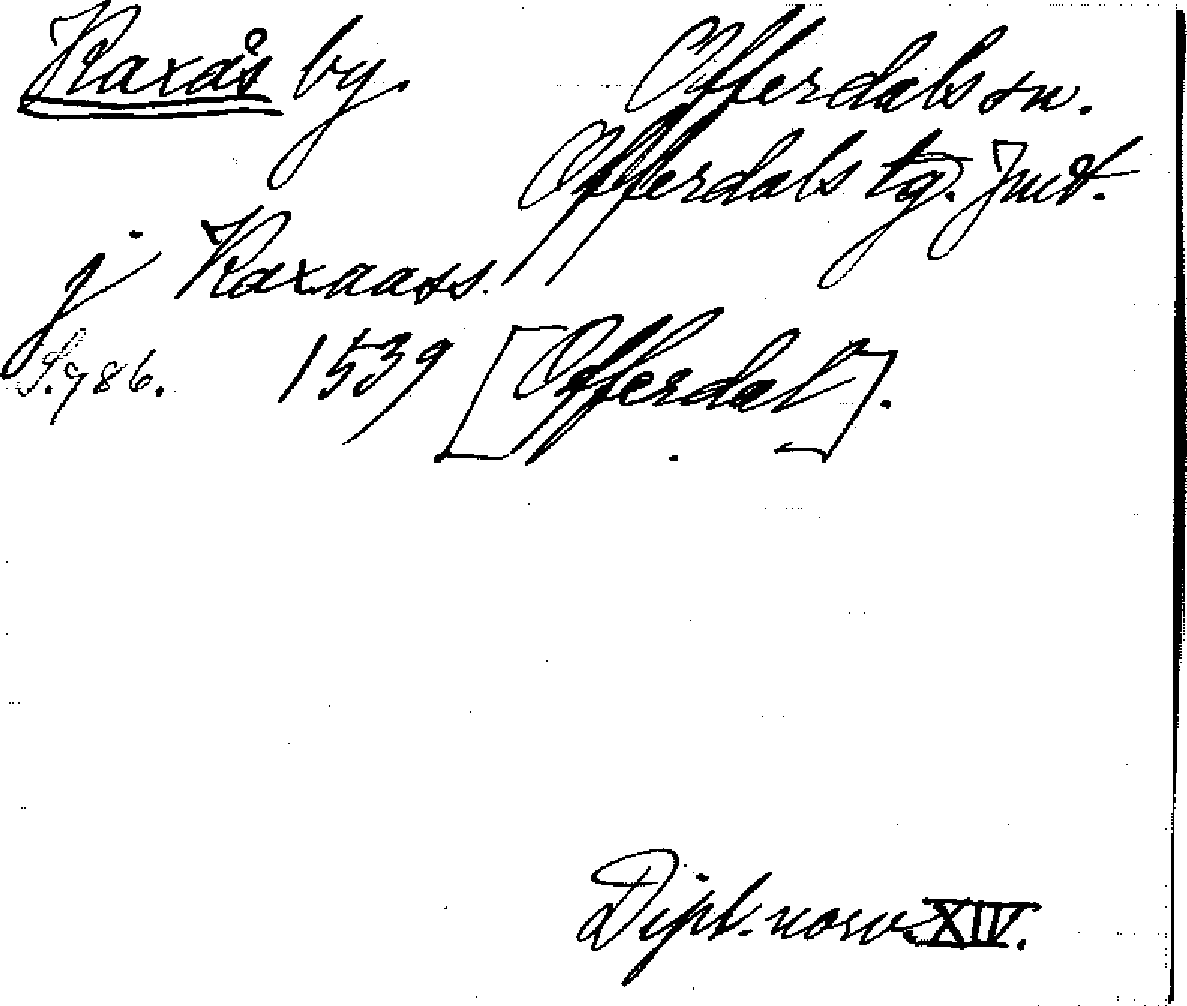 Raxås by. Offerdals sn.
Offerdals tg. Jmt.
j Raxaass.
S. 786. 1539 [Offerdal].
Dipl. norv. XIV.